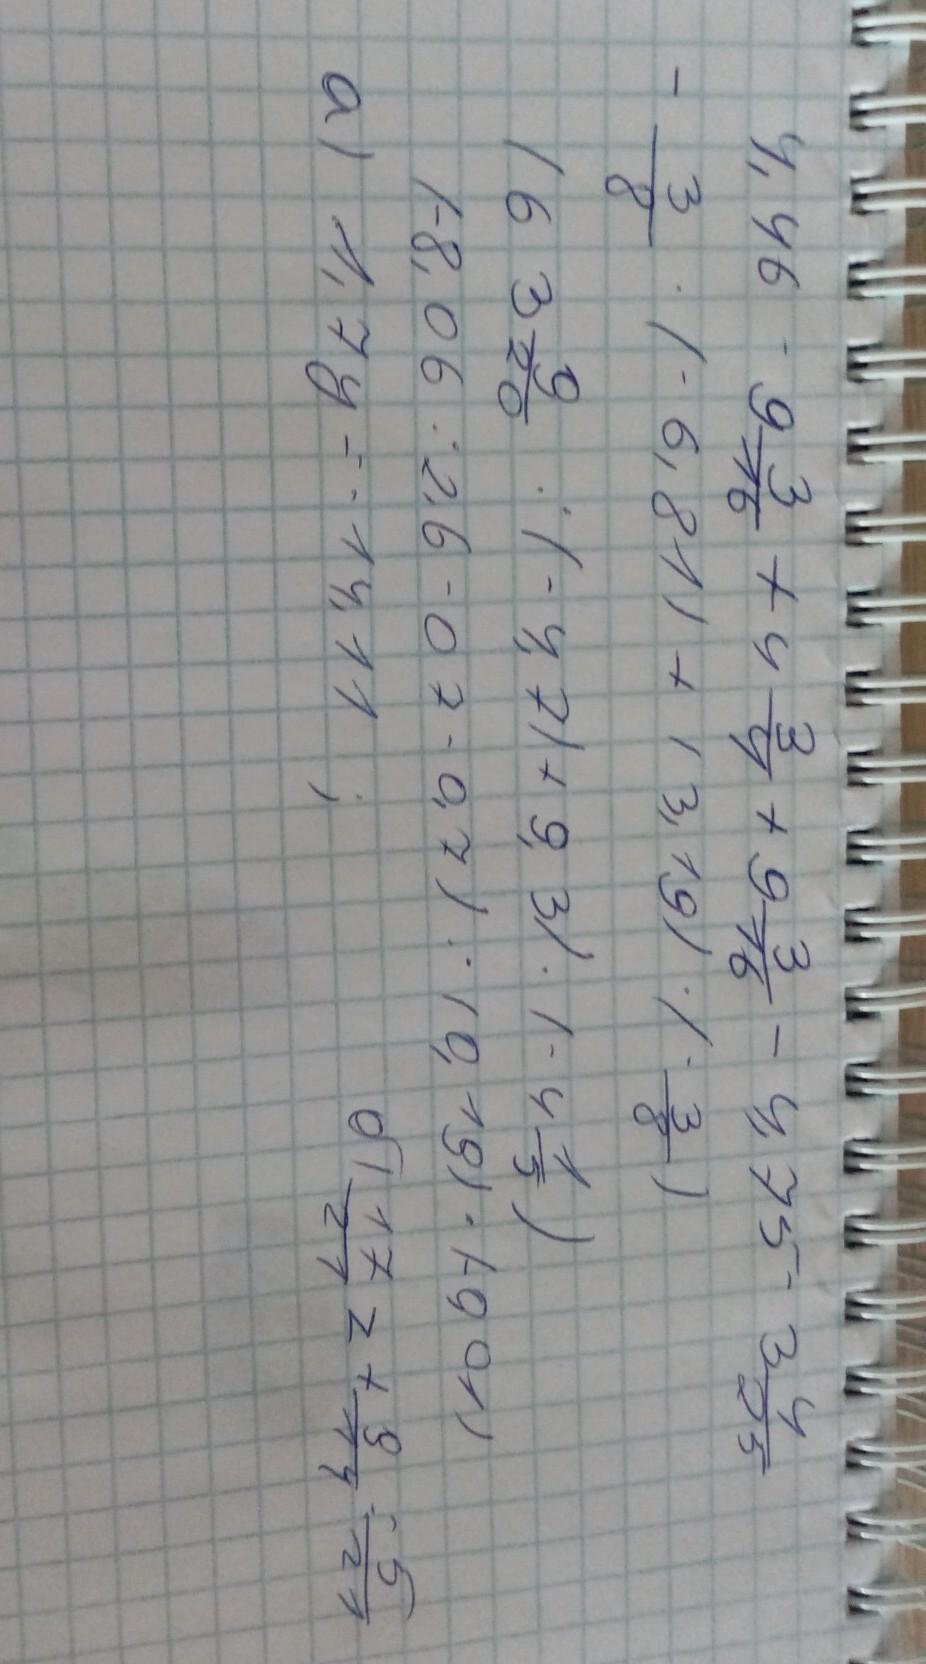 4,46 - 9 3/16 + 4 3/4 + 9 3/16 - 4,75 - 3 4/25
- 3/8 · (-6,81) + (3,19) · (- 3/8)
(6 3 9/20 : (-4,7) + 9,3) · (-4 1/5)
(-8,06 : 2,6 - 0,7 - 0,7) · (0,19) · (-901)
а) 1,7y = -14,11 ; б) 17/21 z + 9/14 = 5/21